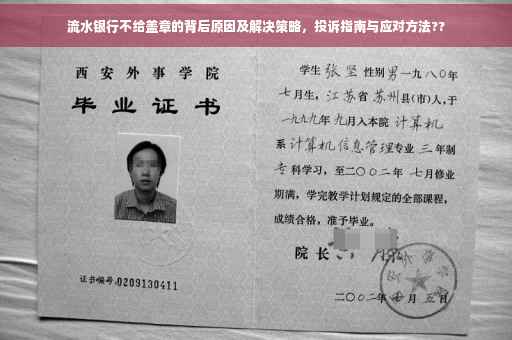 流水银行不给盖章的背后原因及解决策略，投诉指南与应对方法??
西安外事学院
毕业证书
证书编号:0209130411
学生 张坚 性别男 一九八〇年
七月生，江苏省 苏州县(市)人，于
一九九九年 九月入本院 计算机
系 计算机信息管理专业 三年制
专科学习，至二〇〇二年 七月修业
期满，学完教学计划规定的全部课程，
成绩合格，准予毕业。
院长
二〇〇二年 月五日